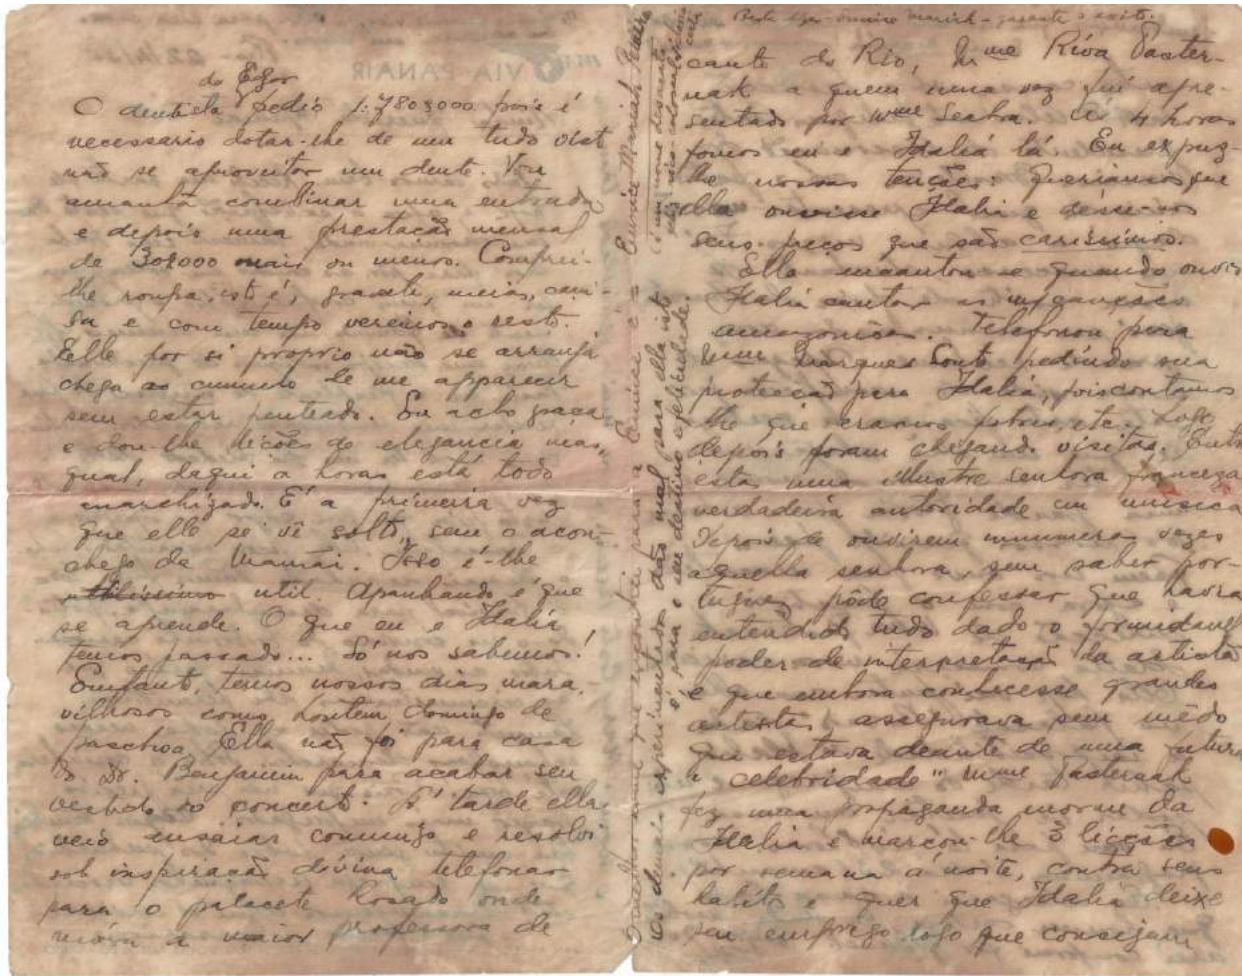 do Egor
O dentista pedio 1:780$000 pois é
necessario dotar-lhe de um tudo visto
não se aproveitar um dente. Vou
amanhã combinar uma entrada
e depois uma prestação mensal
de 30$000 mais ou menos. Comprei-
lhe roupa, isto é, gravata, meias, cami-
sa e com tempo veremos o resto.
Elle por si proprio não se arranja
chega ao cumulo de me apparecer
sem estar penteado. Eu acho graça
e dou-lhe licções de elegancia mas,
qual, daqui a horas está todo
E' a primeira vez
que elle se vê solto, sem o acon-
chego da Mamãi. Isso é-lhe
utilissimo util. Apanhando é que
se aprende. O que eu e Idalia
temos passado... Só nos sabemos!
temos nossos dias mara-
vilhosos como hontem domingo de
paschoa. Ella não foi para casa
do Dr. Benjamin para acabar seu
vestido do concerto. A' tarde ella
veio ensaiar commigo e resolvi
sob inspiração divina telefonar
para o palacete Rosado onde
móra a maior professora de
VIA PANAIR
cante do Rio, Mme Riva Paster-
nak a quem uma vez fui apre-
sentado por uma Senhra. ás 4 horas
fomos eu e Idalia lá. Eu expuz-
lhe nossas tenções: Queriamos que
ella ouvisse Idalia e désse-nos
seus preços que são carissimos.
Ella encantou-se quando ouvio
Idalia cantar as canções
amazonicas. Telefonou para
Mme Marques Couto pedindo sua
protecção para Idalia, pois contamos
lhe que eramos pobres, etc. Logo
depois foram chegando visitas. Entre
estas uma illustre senhora franceza
verdadeira autoridade em musica
Depois de ouvirem innumeras vezes
aquella senhora, sem saber por-
tuguez pôde confessar que havia
entendido tudo dado o formidavel
poder de interpretação da artista
e que embora conhecesse grandes
artistas assegurava sem mêdo
que estava deante de uma futura
"celebridade" Mme Pasternak
fez uma propaganda enorme da
Idalia e marcou-lhe 3 licções
por semana á noite, contra seus
habitos e quer que Idalia deixe
seu emprego logo que consigam